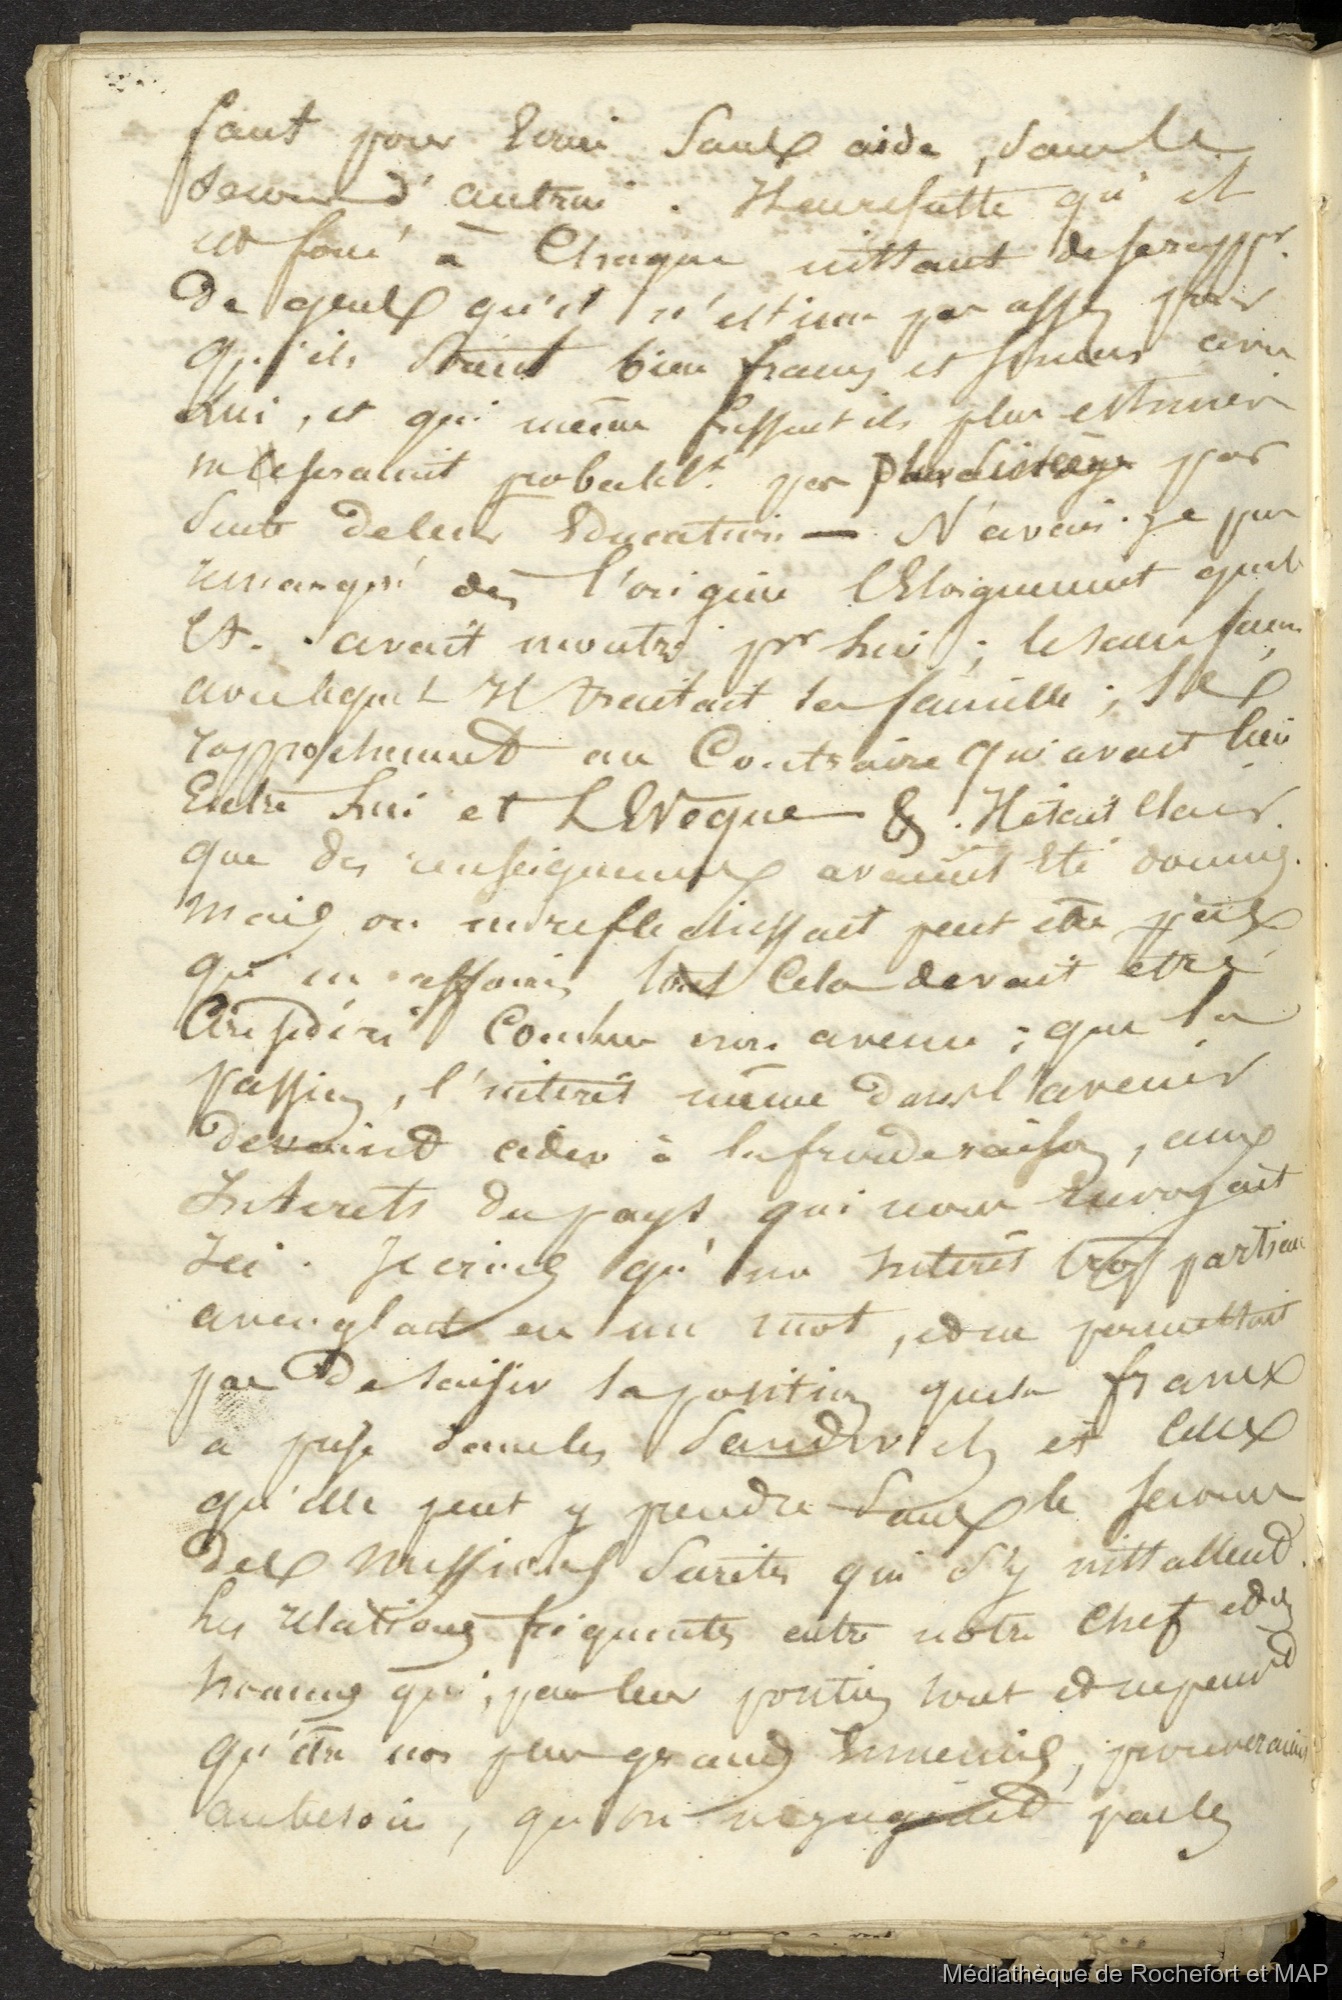 faut pour sans aide, sans le
secours d'autrui. qu'il
est forcé à chaque instant de se rappr.
de gens qu'il n'estime pas assez pour
qu'ils soient bien francs et avec
lui, et qui même fussent ils plus estimés
ne le seraient probablt. pas par
suite de leur Education — N'avais-je pas
remarqué dès l'origine l'Eloignement que le
Ct. avait montré pr lui ; le sans façon
avec lequel Il traitait sa famille ; le
rapprochement au Contraire qui avait lieu
Entre lui et L'Evêque & . Il était clair
que des renseignements avaient Eté donnés.
Mais on ne réfléchissait peut être pas
qu'en affaires tout Cela devait être
Considéré Comme non avenu ; que la
passion, l'intérêt même dans l'avenir
devaient céder à la froide raison, aux
Intérets du pays qui nous Envoyait
Ici. Je crois qu'un Intérêt trop
aveuglait en un mot, et ne permettait
pas de saisir la position que la france
a prise dans les Sandwich et Celle
qu'elle peut y prendre Sans le secours
des Missions qui s'y installent.
Les relations fréquentes entre notre Chef et des
hommes qui, par leur position sont et ne peuvent
qu'être nos plus grands Ennemis, prouveraient
au besoin, qu'on par les
Médiathèque de Rochefort et MAP